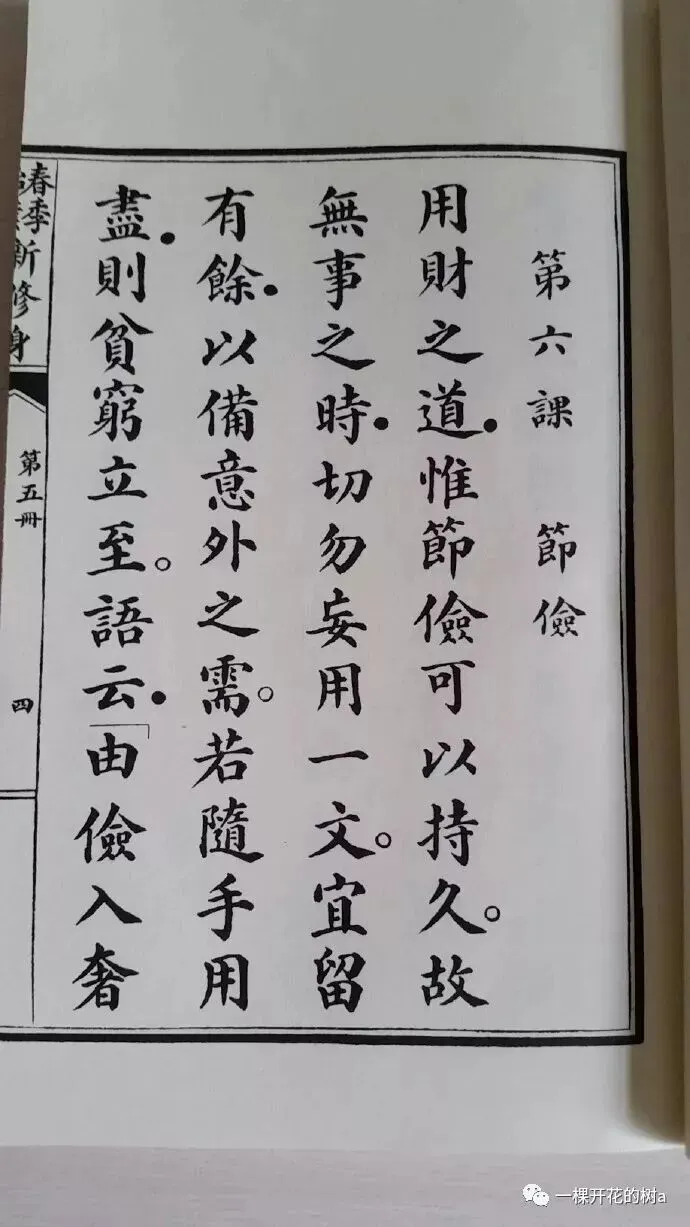 第六課 節儉
用財之道●惟節儉可以持久○故
無事之時●切勿妄用一文○宜留
有餘●以備意外之需○若隨手用
盡●則貧窮立至○語云●「由儉入奢
春季
新修身
第五冊
四
一棵开花的树a